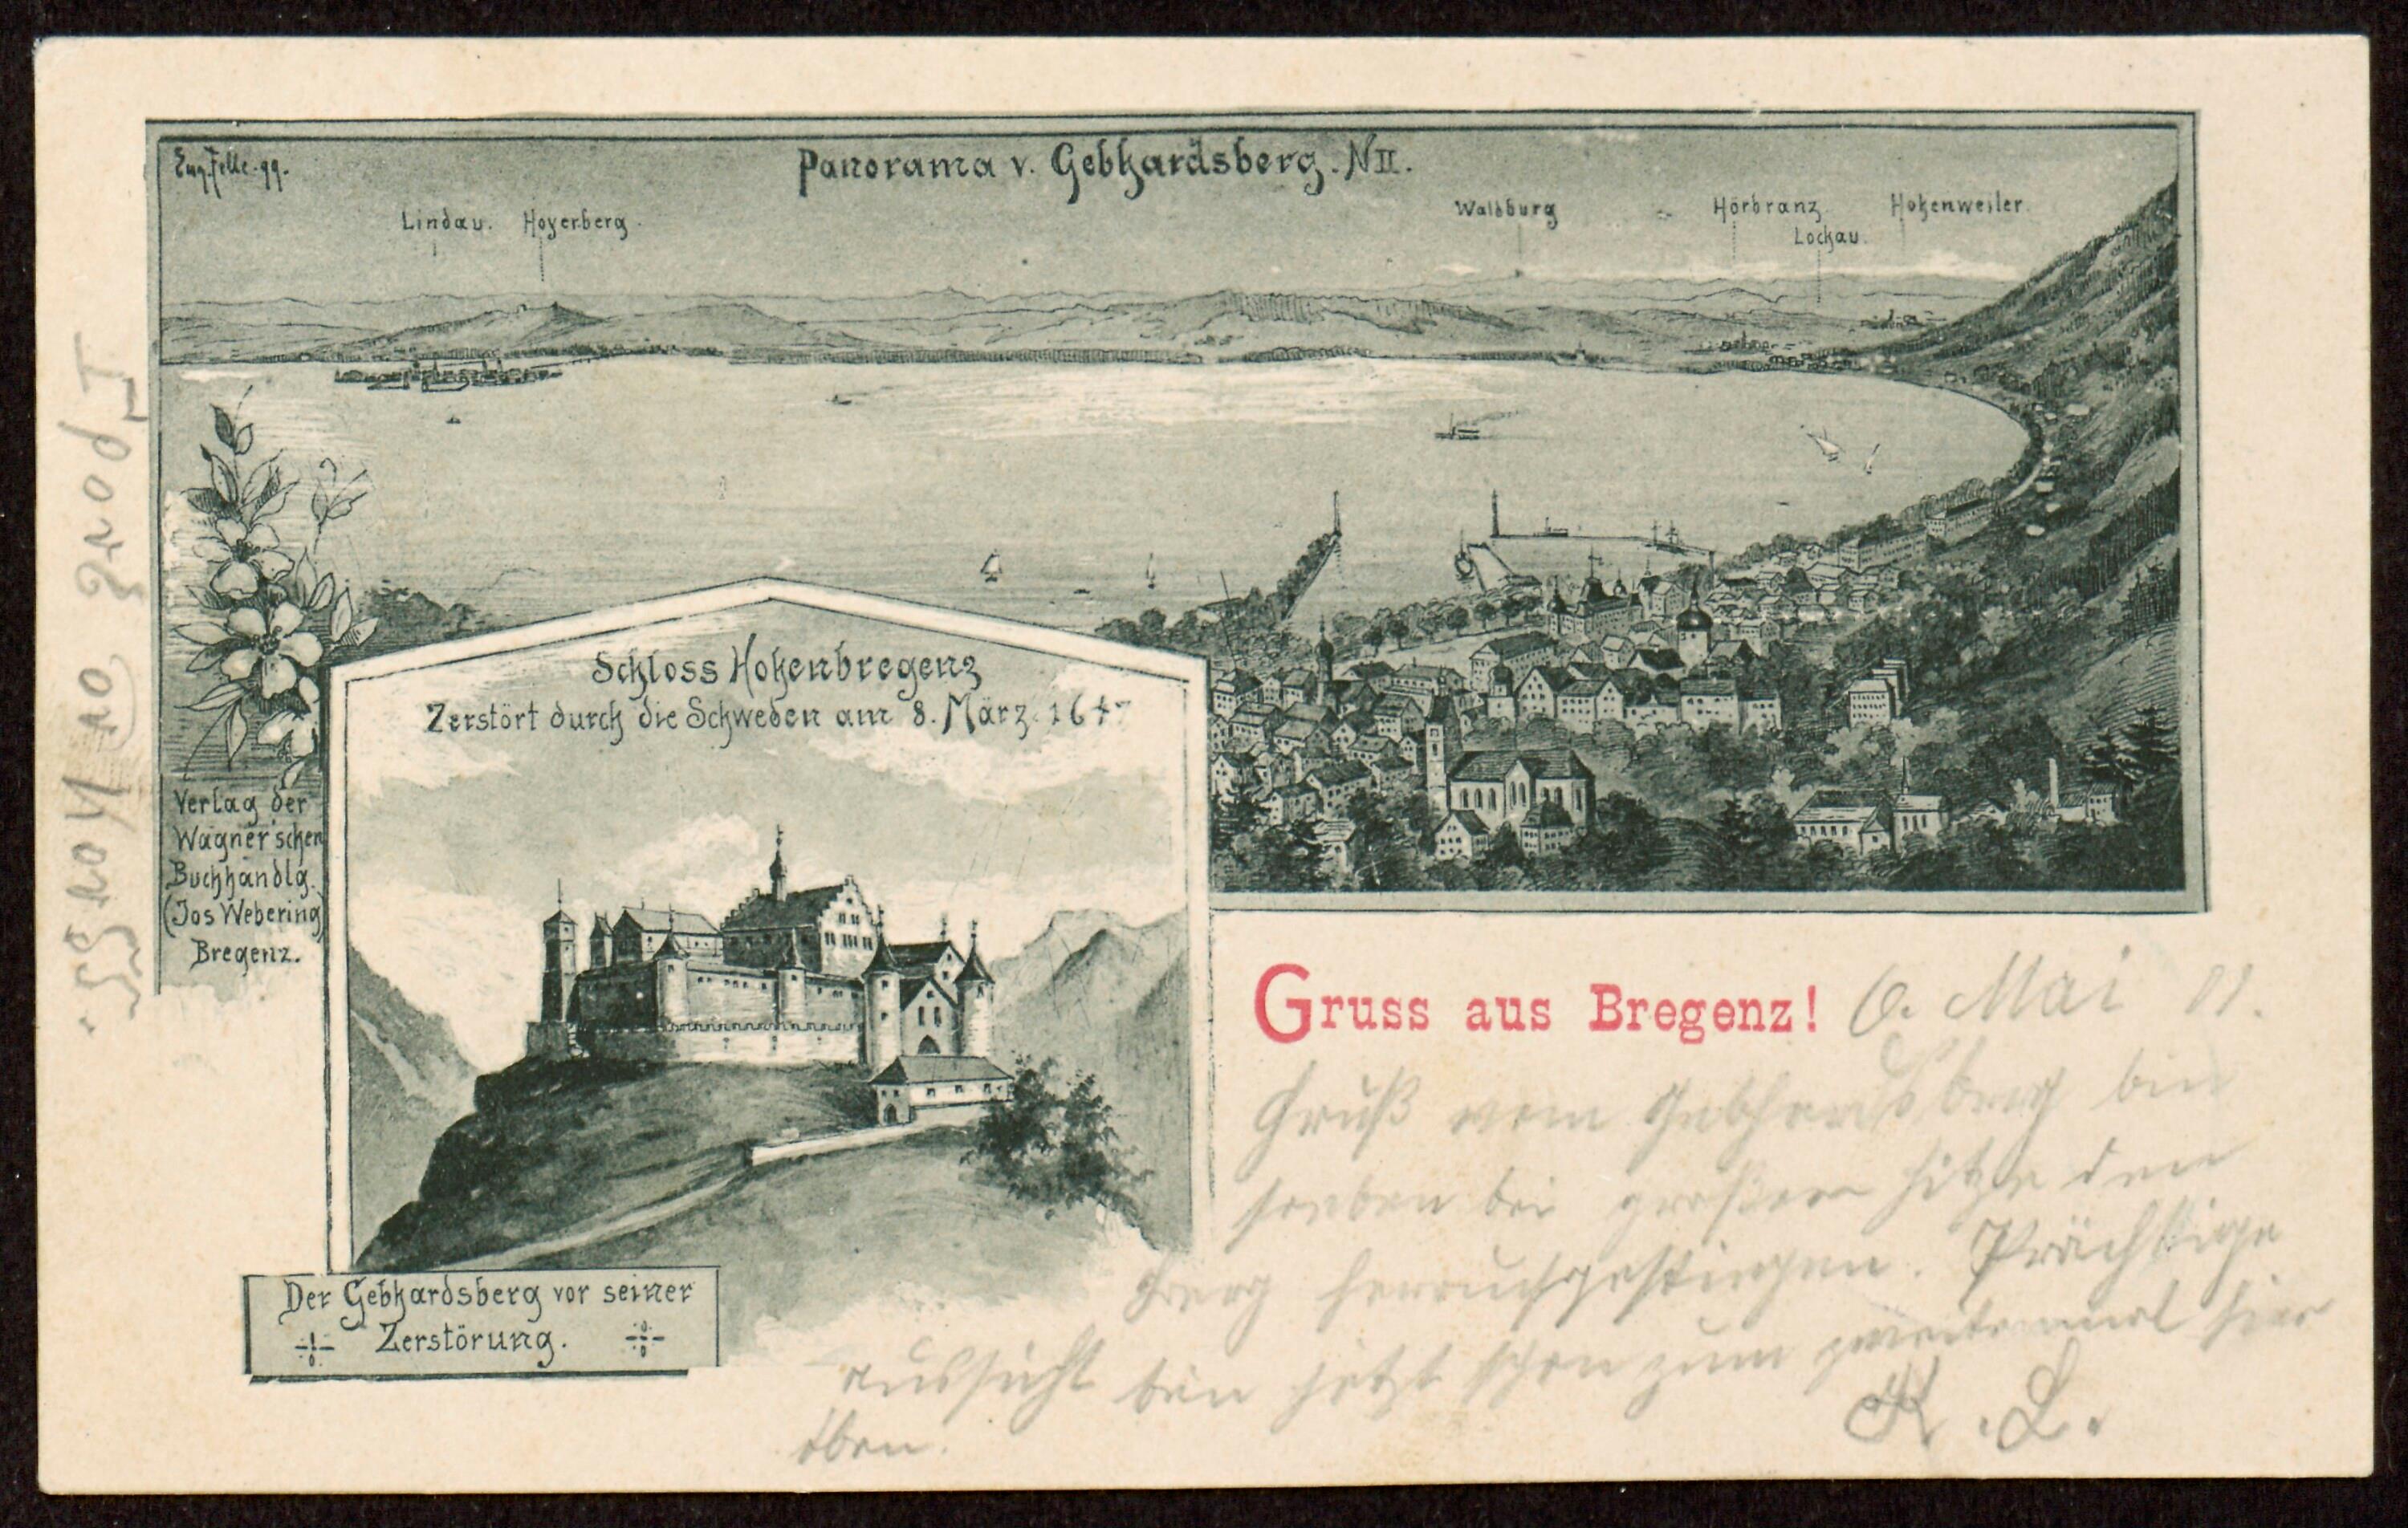 Eug. Felle. 99.
Panorama v. Gebhardsberg. N II.
Lindau. Hoyerberg.
Waldburg
Hörbranz
Lochau.
Hohenweiler
Schloss Hohenbregenz
Zerstört durch die Schweden am 8. März 1647
Verlag der
Wagner'schen
Buchhandlg.
(Jos Webering)
Bregenz.
Der Gebhardsberg vor seiner
Zerstörung.
Gruss aus Bregenz! 6. Mai 01.
Gruß vom Gebhardsberg bin
soeben bei großer Hitze den
Berg heraufgestiegen. Prächtige
Aussicht bin jetzt schon zum zweitenmal hier
oben.
K. L.